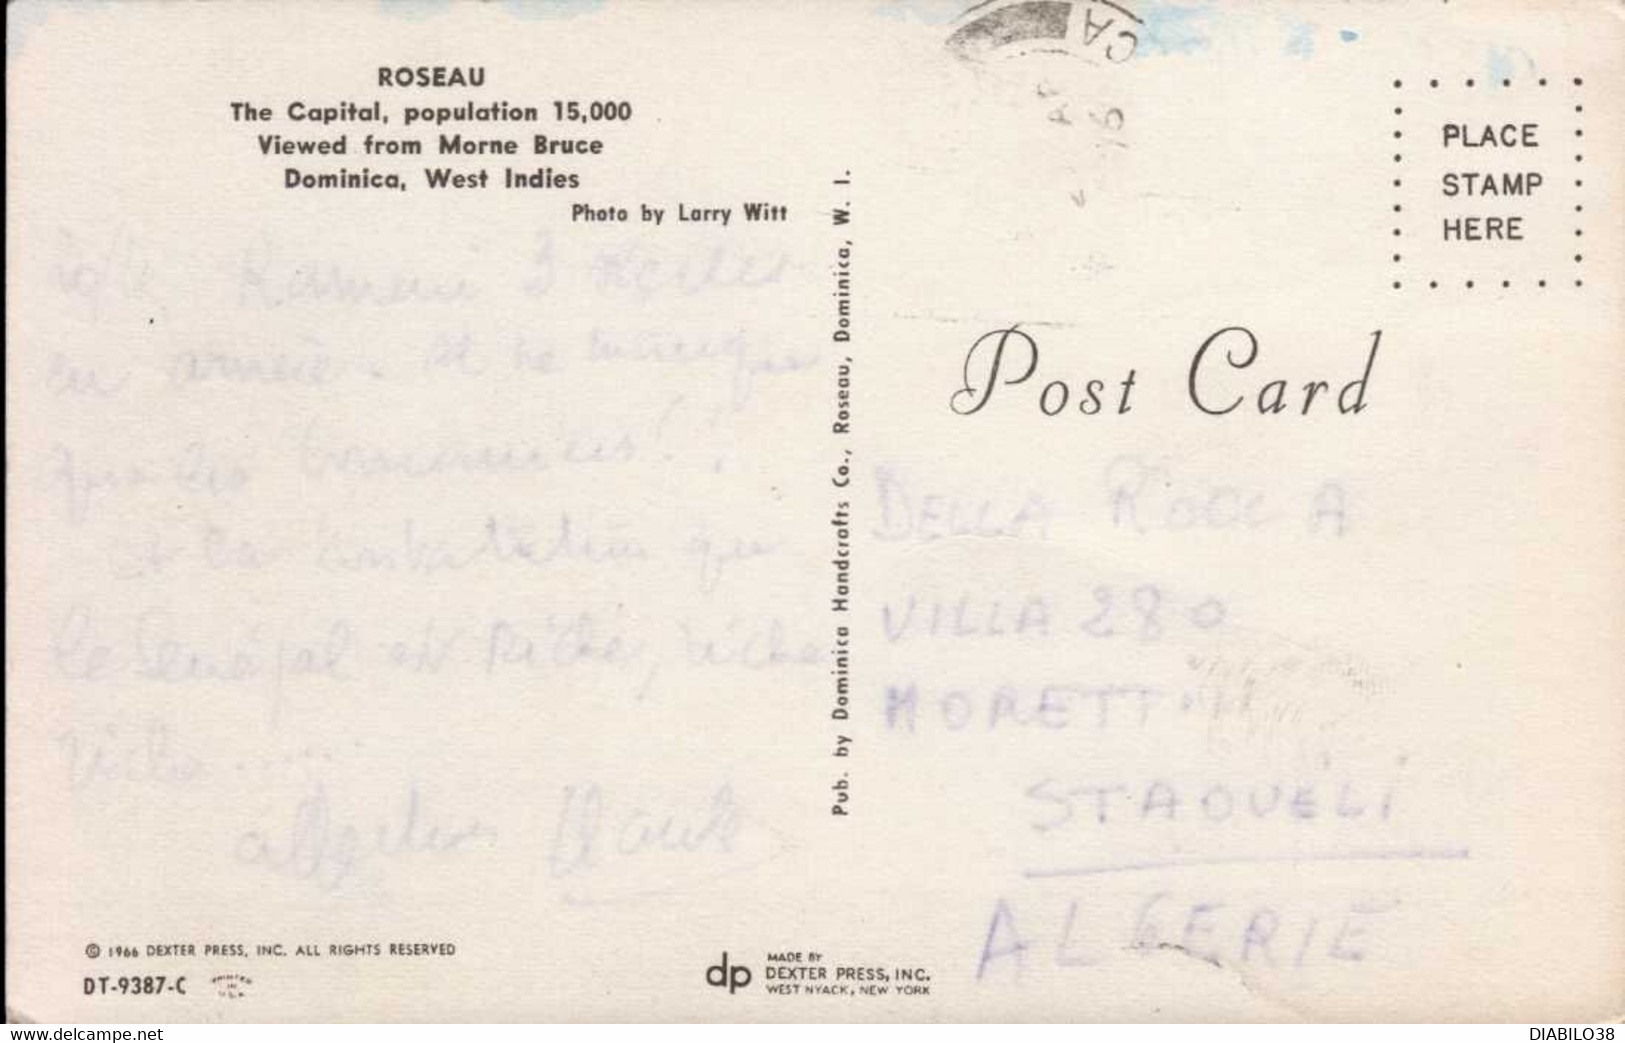 ROSEAU
The Capital, population 15,000
Viewed from Morne Bruce
Dominica, West Indies
Photo by Larry Witt
3
en arrière. Il ne manque
que les bananiers!
constatation que
le Sénégal est riche, riche
riche.....
Pub. by Dominica Handcrafts Co., Roseau, Dominica, W. I.
CA
PLACE
STAMP
HERE
Post Card
DELLA ROCCA
VILLA 280
MORETTI
STAOUELI
ALGERIE
© 1966 DEXTER PRESS, INC. ALL RIGHTS RESERVED
DT-9387-C
dp
MADE BY
DEXTER PRESS, INC.
WEST NYACK, NEW YORK
www.delcampe.net
DIABILO38